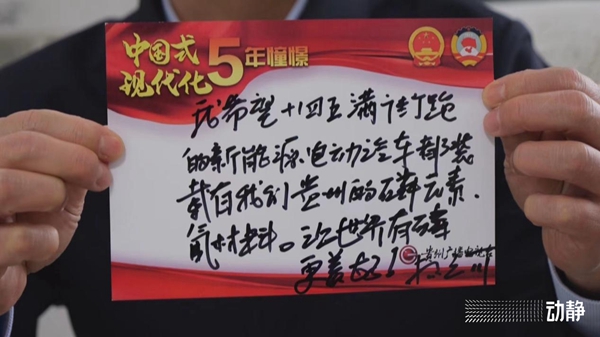 中国式
现代化
5年憧憬
我希望十四五满街跑
的新能源电动汽车都装
载有我们贵州的磷元素、
氟材料。让世界有磷
更美好!
贵州广播电视台
动静